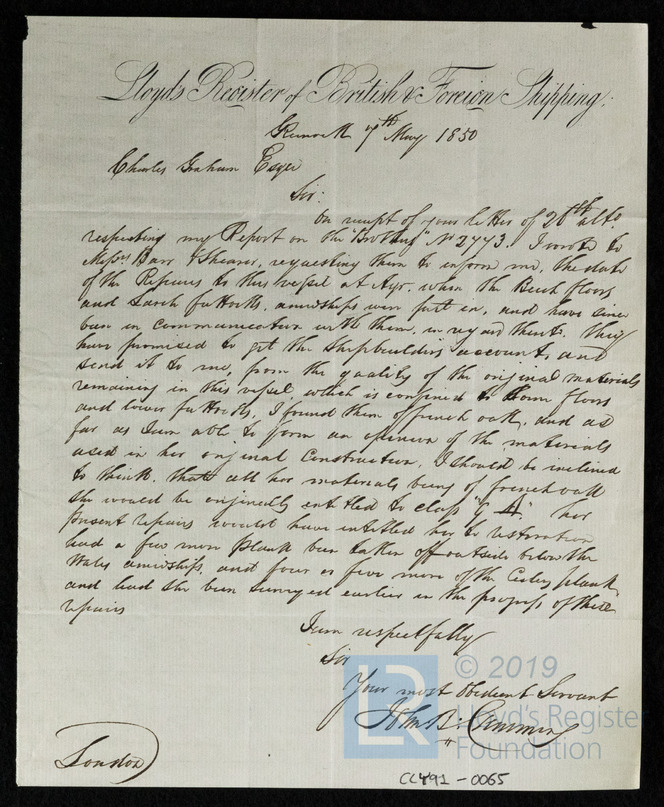 Lloyd's Register of British & Foreign Shipping.
Greenock 7th May 1850
Charles Graham Esqre
Sir:
On receipt of your letter of 26th ulto.
respecting my Report on the "Brothers" No 2743. I wrote to
Messrs Barr & Shearer, requesting them to inform me, the date
of the Repairs to this vessel at Ayr, when the Beech floors
and Larch futtocks, amidships were put in, and have since
been in communication with them, in regard thereto. They
have promised to get the shipbuilders accounts, and
send it to me, from the quality of the original materials
remaining in this vessel, which is confined to some floors
and lower futtocks, I found them of french oak, and as
far as I am able to form an opinion of the materials
used in her original Construction, I should be inclined
to think, that all her materials being of french oak
she would be originally entitled to class A her
present repairs would have entitled her to restoration
had a few more plank been taken off outside below the
Wales amidships, and four or five more of the Ceiling plank
and had she been surveyed earlier in the progress of these
repairs
I am respectfully
Sir
Your most Obedient Servant
John B. Cumming
London
© 2019
Lloyd's Register
Foundation
CC491-0065